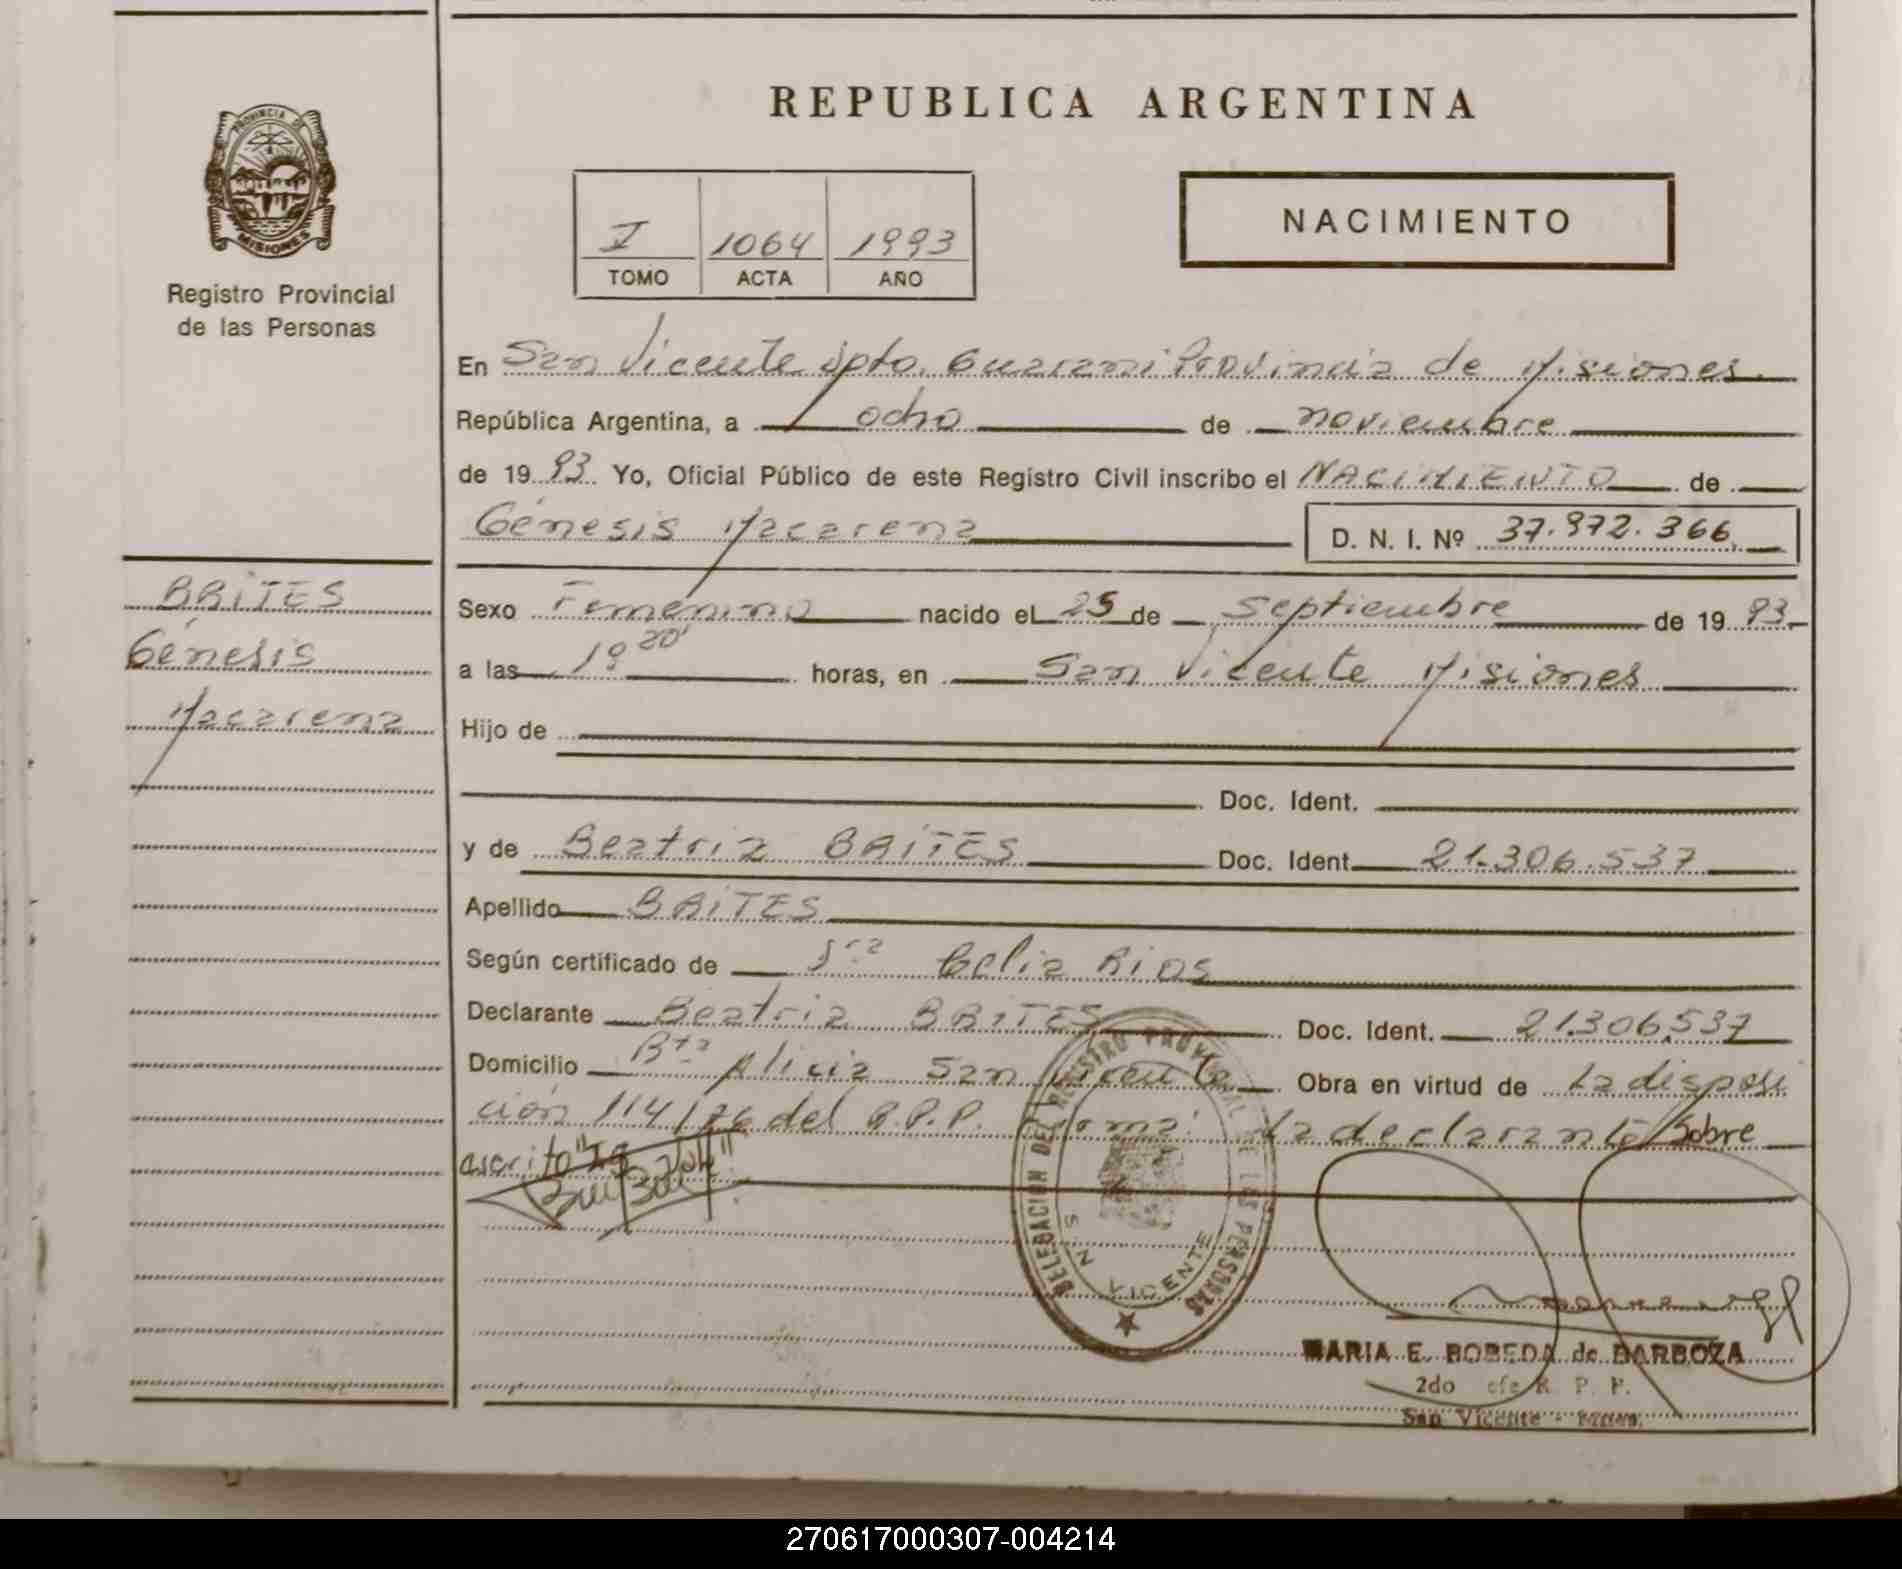 REPUBLICA ARGENTINA
PROVINCIA DE
MISIONES
Registro Provincial
de las Personas
V 1064 1993
TOMO ACTA AÑO
NACIMIENTO
En San Vicente Dpto. Guarani Provincia de Misiones.
República Argentina, a ocho de noviembre
de 19 93. Yo, Oficial Público de este Registro Civil inscribo el NACIMIENTO de
Génesis Macarena D. N. I. Nº 37.972.366.
BRITES
Génesis
Macarena
Sexo Femenino nacido el 25 de septiembre de 19 93.
a las 19 20' horas, en San Vicente Misiones
Hijo de
Doc. Ident.
y de Beatriz BRITES Doc. Ident. 21.306.537
Apellido BRITES
Según certificado de Sra Celia Rios
Declarante Beatriz BRITES Doc. Ident. 21.306.537
Domicilio Bta Alicia San Vicente Obra en virtud de La disposi
ción 114/76 del R.P.P. La declarante Sobre
ascrito
DELEGACION DEL REGISTRO PROVINCIAL DE LAS PERSONAS
SAN VICENTE
MARIA E. BOBEDA de BARBOZA
2do efe R. P. P.
San Vicente -
270617000307-004214